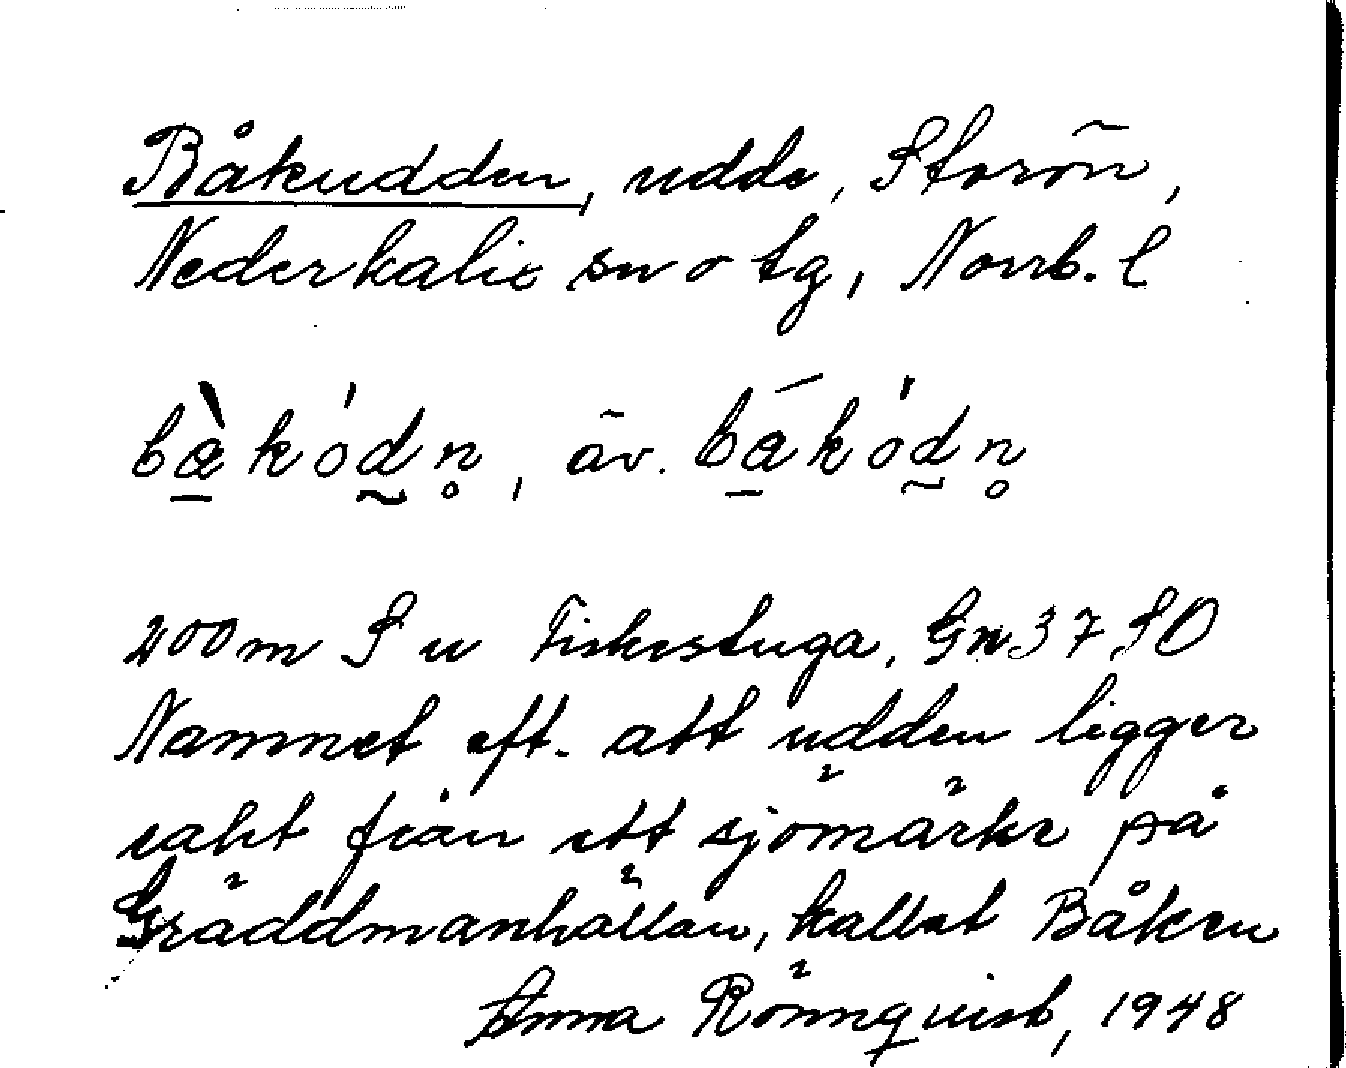 Båkudden, udde, Storön,
Nederkalix sn o tg, Norrb. l
bàkódn̥, äv. bákódn̥
200 m S u Fiskestuga. Gn 37 SO
Namnet eft. att udden ligger
rakt från ett sjömärke på
Gräddmanhällan, kallat Båken
Anna Rönnqvist, 1948